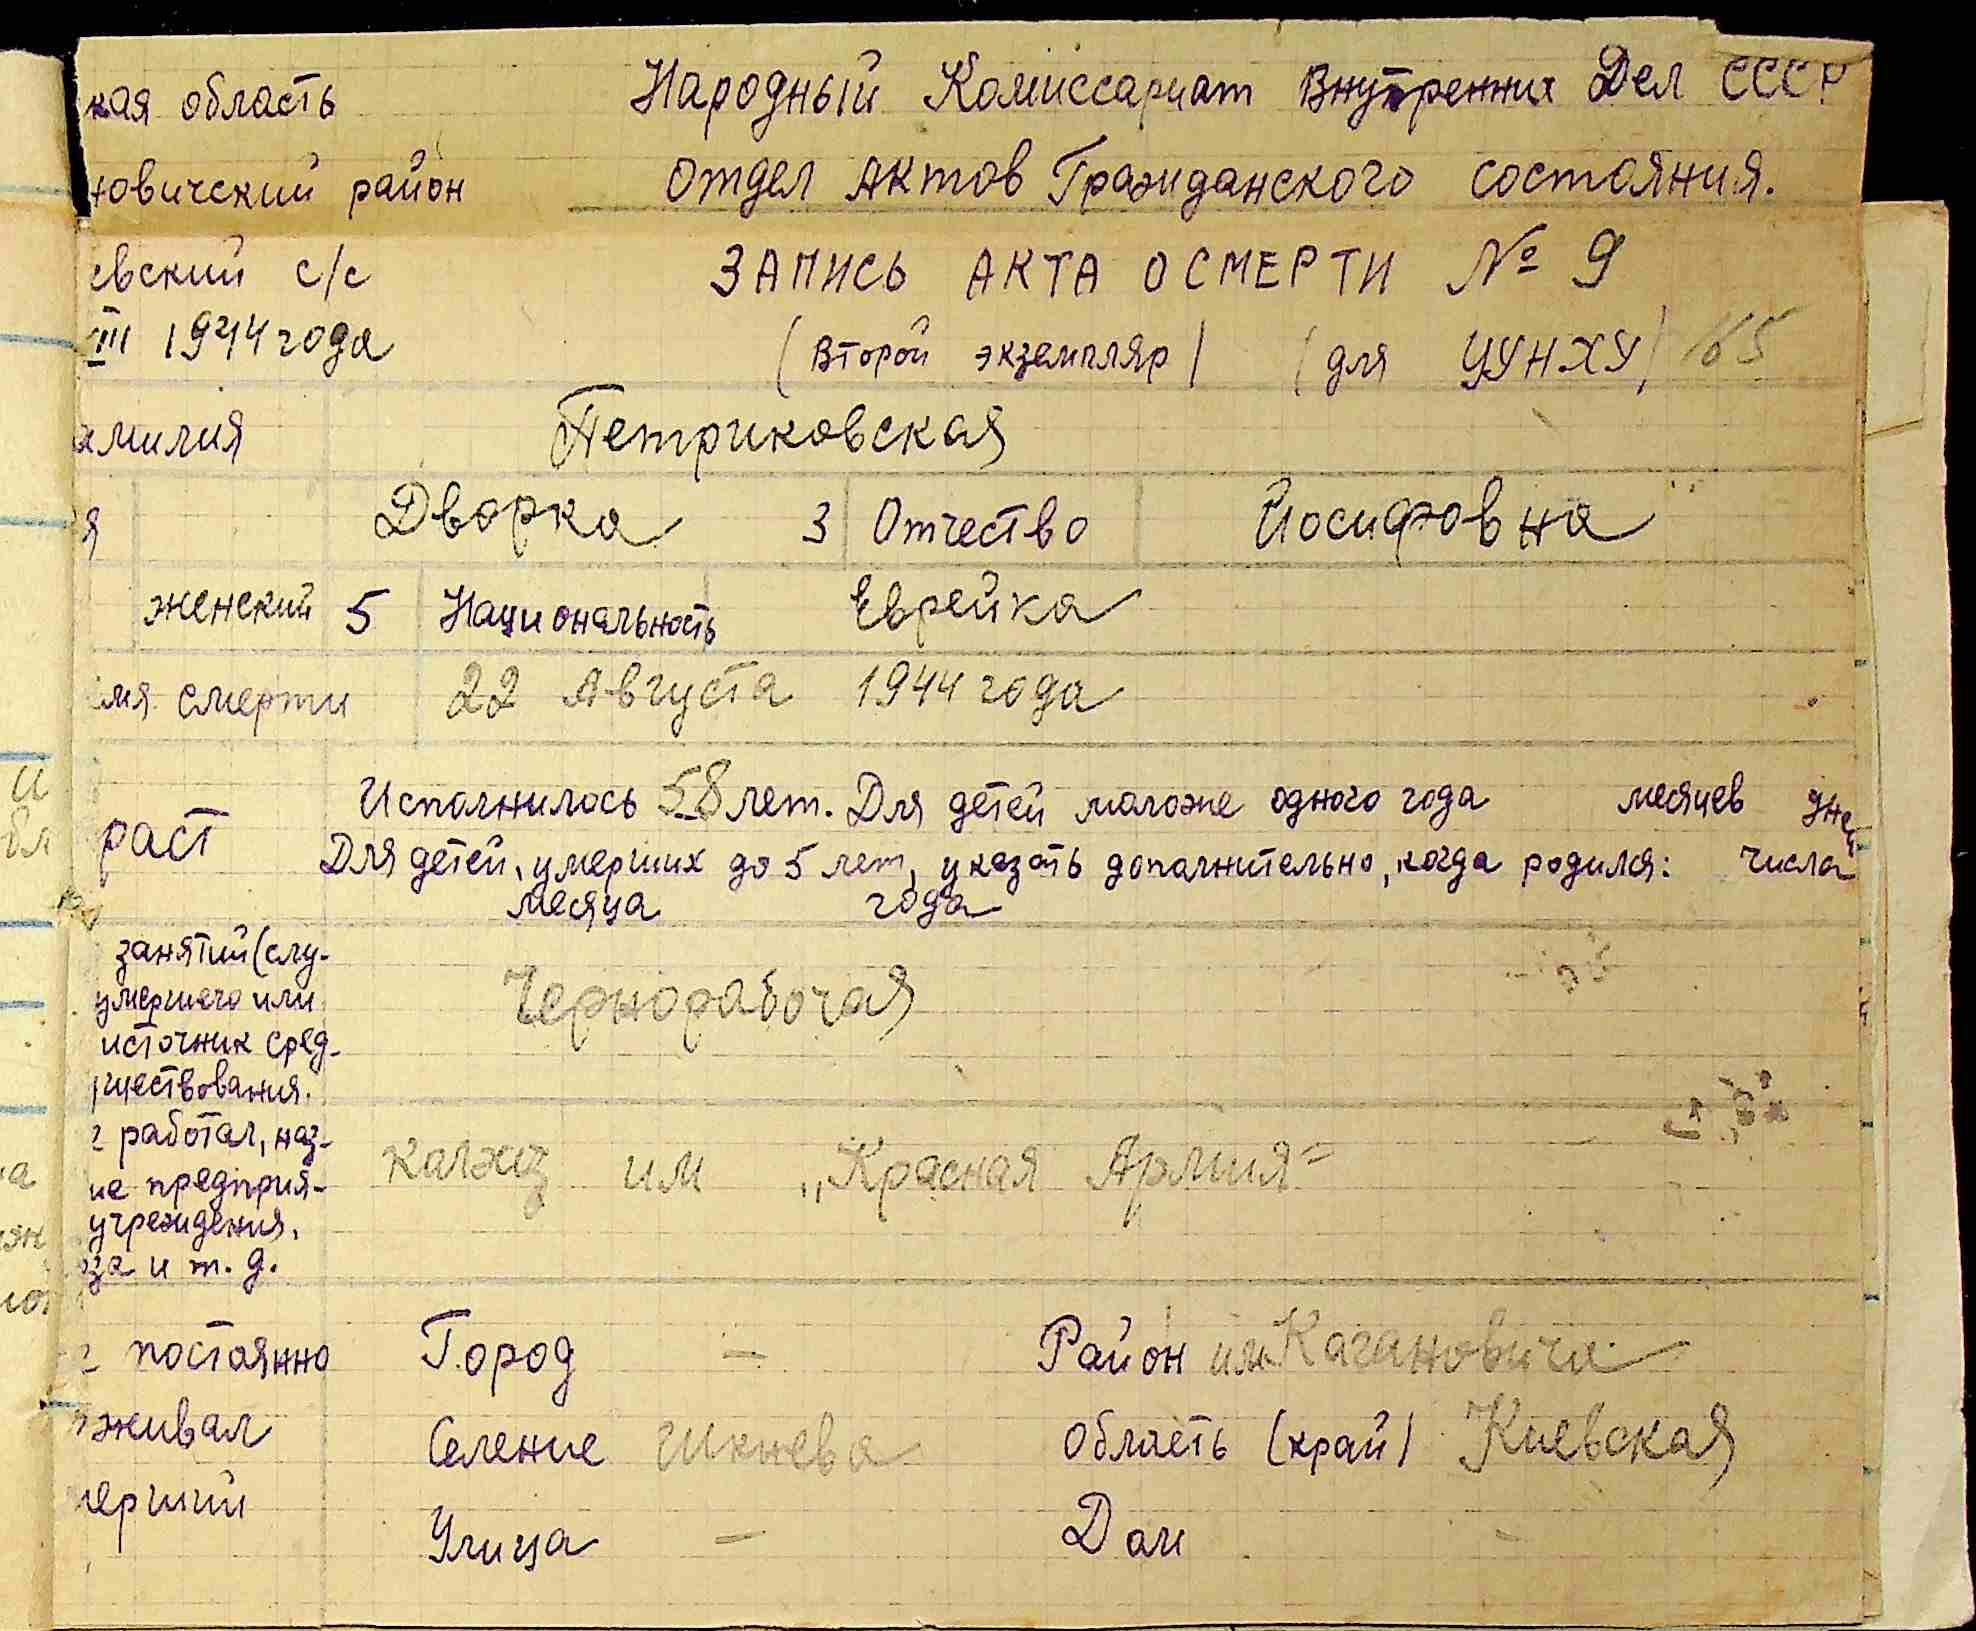 кая область Народный Комиссариат Внутренних Дел СССР
новичский район Отдел Актов Гражданского состояния.
евский с/с ЗАПИСЬ АКТА О СМЕРТИ № 9
III 1944 года (Второй экземпляр) (для ЦУНХУ) 165
амилия Петриковская
я Дворка 3 Отчество Йосифовна
женский 5 Национальность Еврейка
мя смерти 22 Августа 1944 года
раст Исполнилось 58 лет. Для детей моложе одного года месяцев дней
Для детей, умерших до 5 лет, указать дополнительно, когда родился: числа
месяца года
занятий (слу-
умершего или
источник сред-
уществования.
Чернорабочая
работал, наз-
ие предприя-
учреждения,
за и т. д.
колхиз им „Красная Армия"
постоянно Город — Район им Кагановича
живал Селение Область (край) Киевская
мерший Улица — Дом -